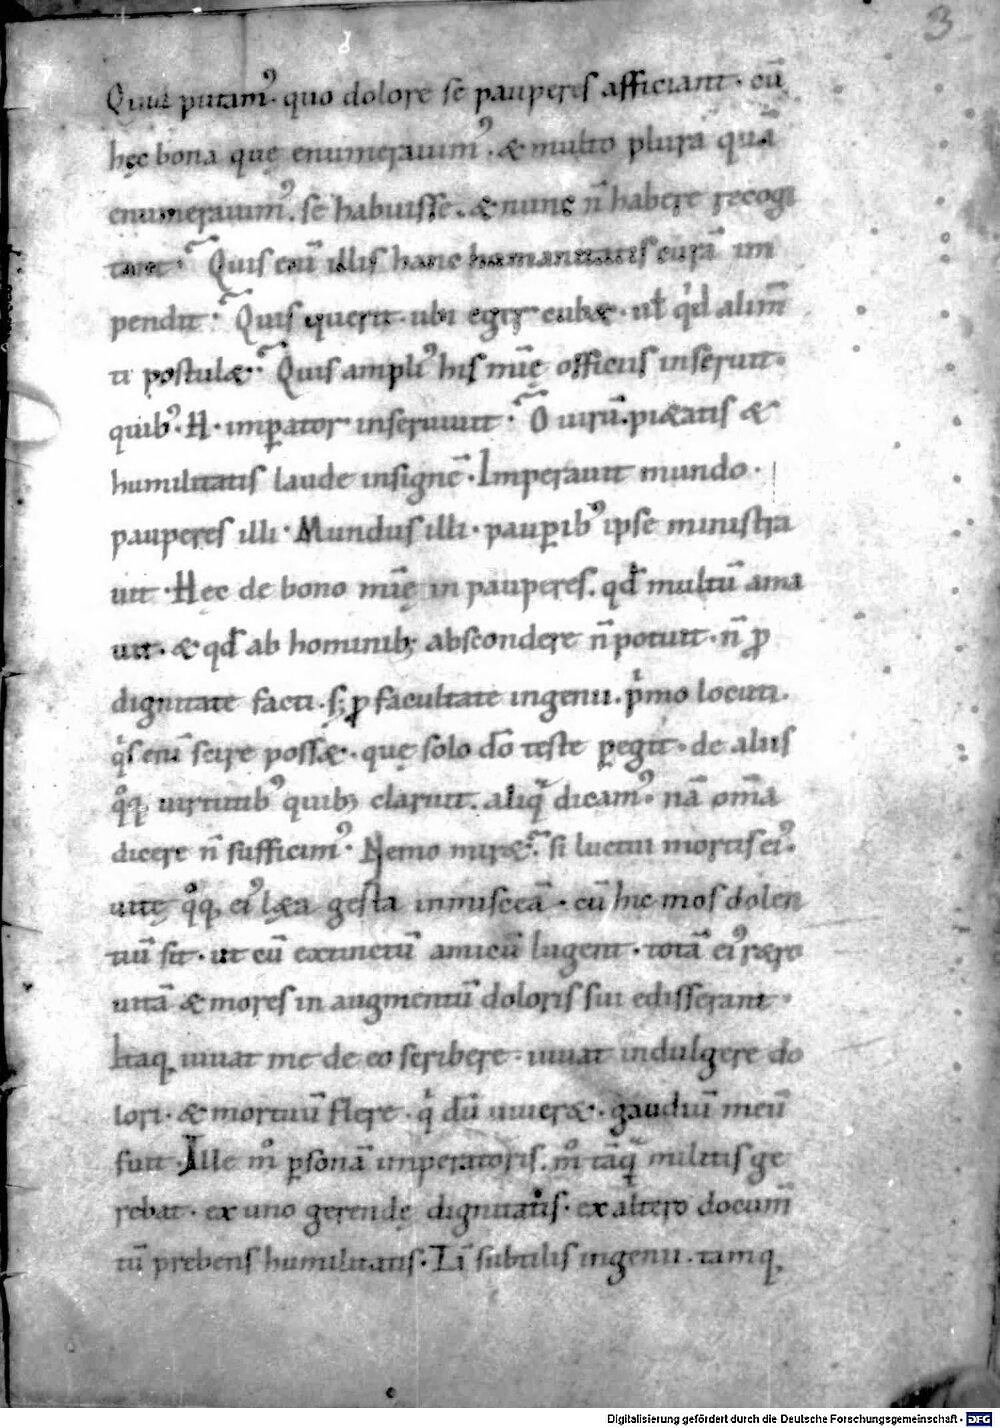 3
Quid putam᾿· quo dolore se pauperes afficiant· cū
hęc bona quę enumerauim᾿· & multo plura quā
enumerauim᾿. se habuisse· & nunc n̄ habere recogi
tant· Quis eni̅ illis hanc humanitatis curā im
pendit· Quis querit· ubi egr̅ cub&· ul̅ qⁱd alim̅
ti postul&· Quis ampli᾿ his mi̅ę officiis inseruit·
quib᾿·H· imꝑator inseruiuit· O uirū· pi&atis &
humilitatis laude insignē· Imperauit mundo·
pauperes illi· Mundus illi· pauꝑib᾿ ipse ministra
uit· Hęc de bono mi̅ę in pauperes. qd̅ multū ama
uit· & qd̅ ab hominib; abscondere n̄ potuit· n̄ ꝓ
dignitate facti· s; ꝓ facultate ingenii. pⁱmo locuti.
qⁱs eni̅ scire poss&· quę solo dō teste ꝑegit· de aliis
qᵒq; uirtutib᾿ quib; claruit. aliqᵃ dicam᾿· nā om̅a
dicere n̄ sufficim᾿· Nemo mir&· si luctui mortis ei᾿·
uitę qᵒq; ei᾿ l&a gesta inmisceā· cū hic mos dolen
tiū sit· ut cū extinctū amicū lugent· totā ei᾿ r&ro
uitā & mores in augmentū doloris sui edisserant·
Itaq; iuuat me de eo scribere· iuuat indulgere do
lori· & mortuū flere· qⁱ dū uiuer&· gaudiū meū
fuit· Ille mᵒ ꝑsonā imperatoris. mᵒ tāqᵃ militis ge
rebat· ex uno gerendę dignitatis· ex altero docum̅
tū prebens humilitatis· Tā subtilis ingenii· tamq;
Digitalisierung gefördert durch die Deutsche Forschungsgemeinschaft - DFG